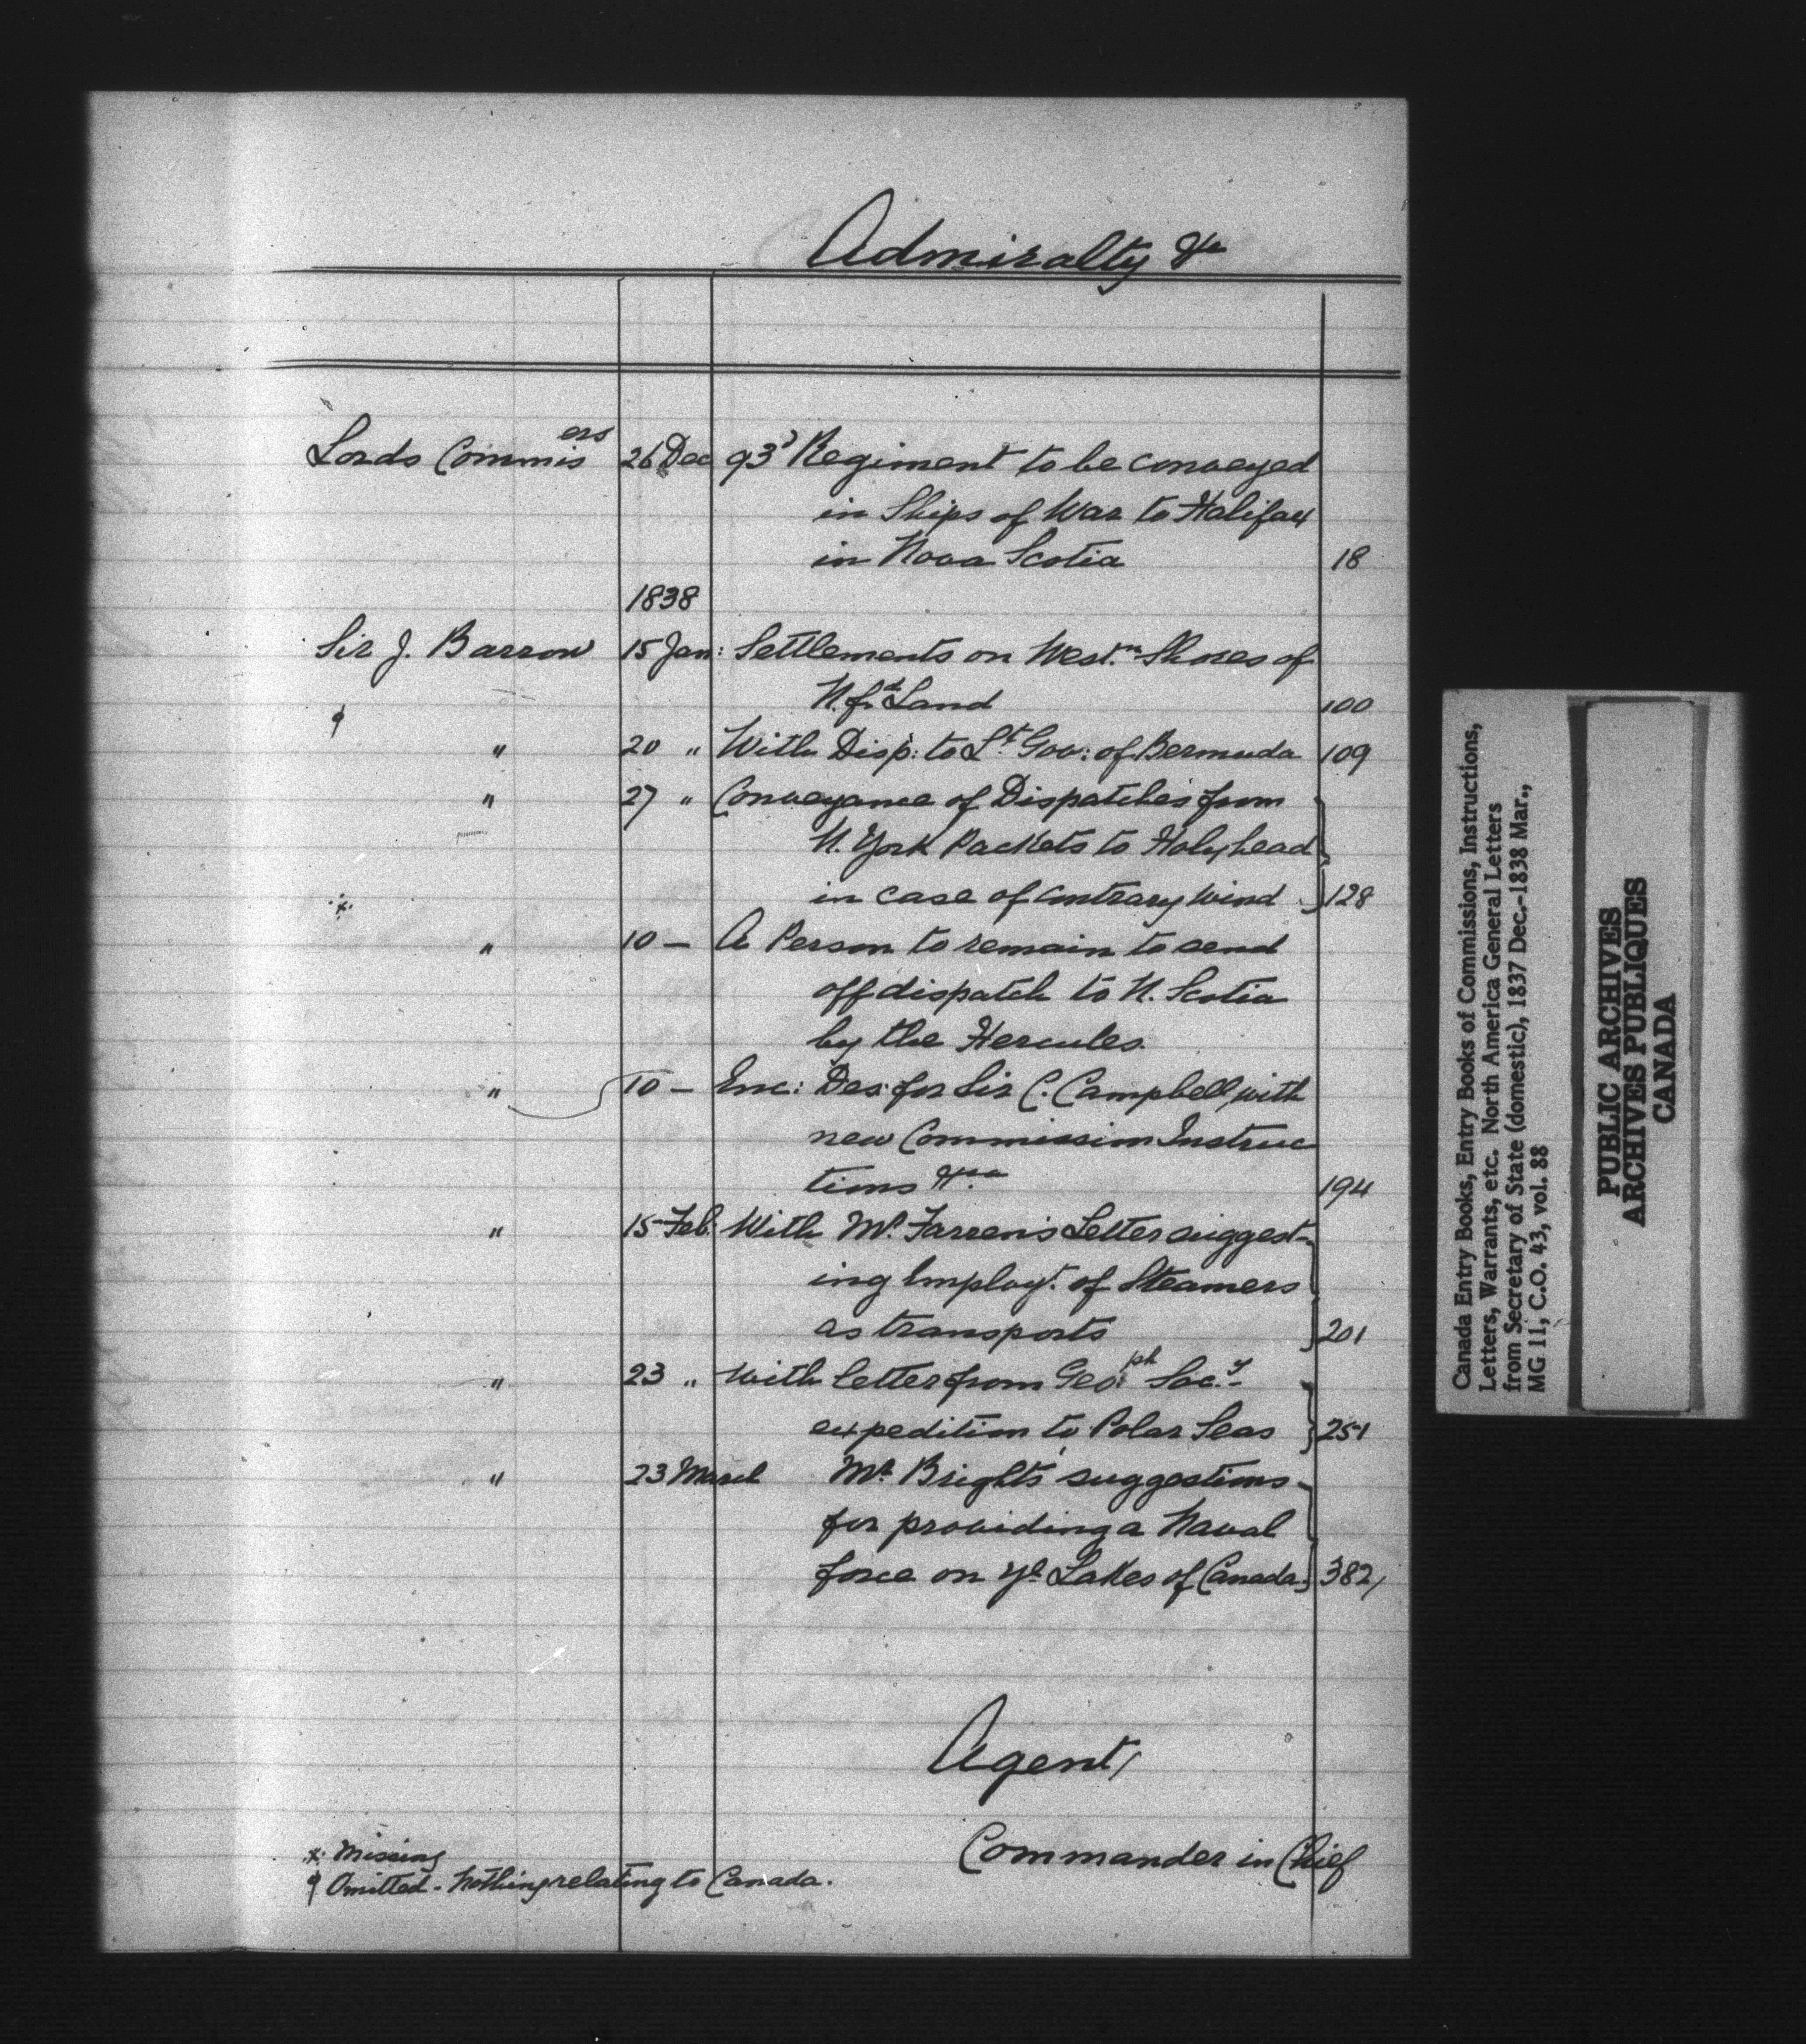 Admiralty &c
Lords Commis^ers 26 Dec 93^d Regiment to be conveyed
in Ships of War to Halifax
in Nova Scotia 18
1838
Sir J. Barrow 15 Jan: Settlements on West.^rn Shores of
N.f.^d Land 100
φ
" 20 " With Disp: to L^t. Gov: of Bermuda 109
" 27 " Conveyance of Dispatches from
N. York Packets to Holyhead
in case of contrary wind 128
※
" 10 — A Person to remain to send
off dispatch to N. Scotia
by the Hercules.
" 10 — Enc: Des: for Sir C. Campbell, with
new Commission Instruc
tions &c.^a 194
" 15 Feb. With M^r. Farren's Letter suggest-
ing Employ^t. of Steamers
as transports 201
" 23 " With letter from Geo^ph. Soc.^y-
expedition to Polar Seas 251
" 23 March M^r. Bright's suggestions
for providing a Naval
force on y^e. Lakes of Canada. 382,
Agent,
Commander in Chief
※ Missing
φ Omitted - Nothing relating to Canada.
Canada Entry Books, Entry Books of Commissions, Instructions,
Letters, Warrants, etc. North America General Letters
from Secretary of State (domestic), 1837 Dec.-1838 Mar.,
MG 11, C.O. 43, vol. 88
PUBLIC ARCHIVES
ARCHIVES PUBLIQUES
CANADA